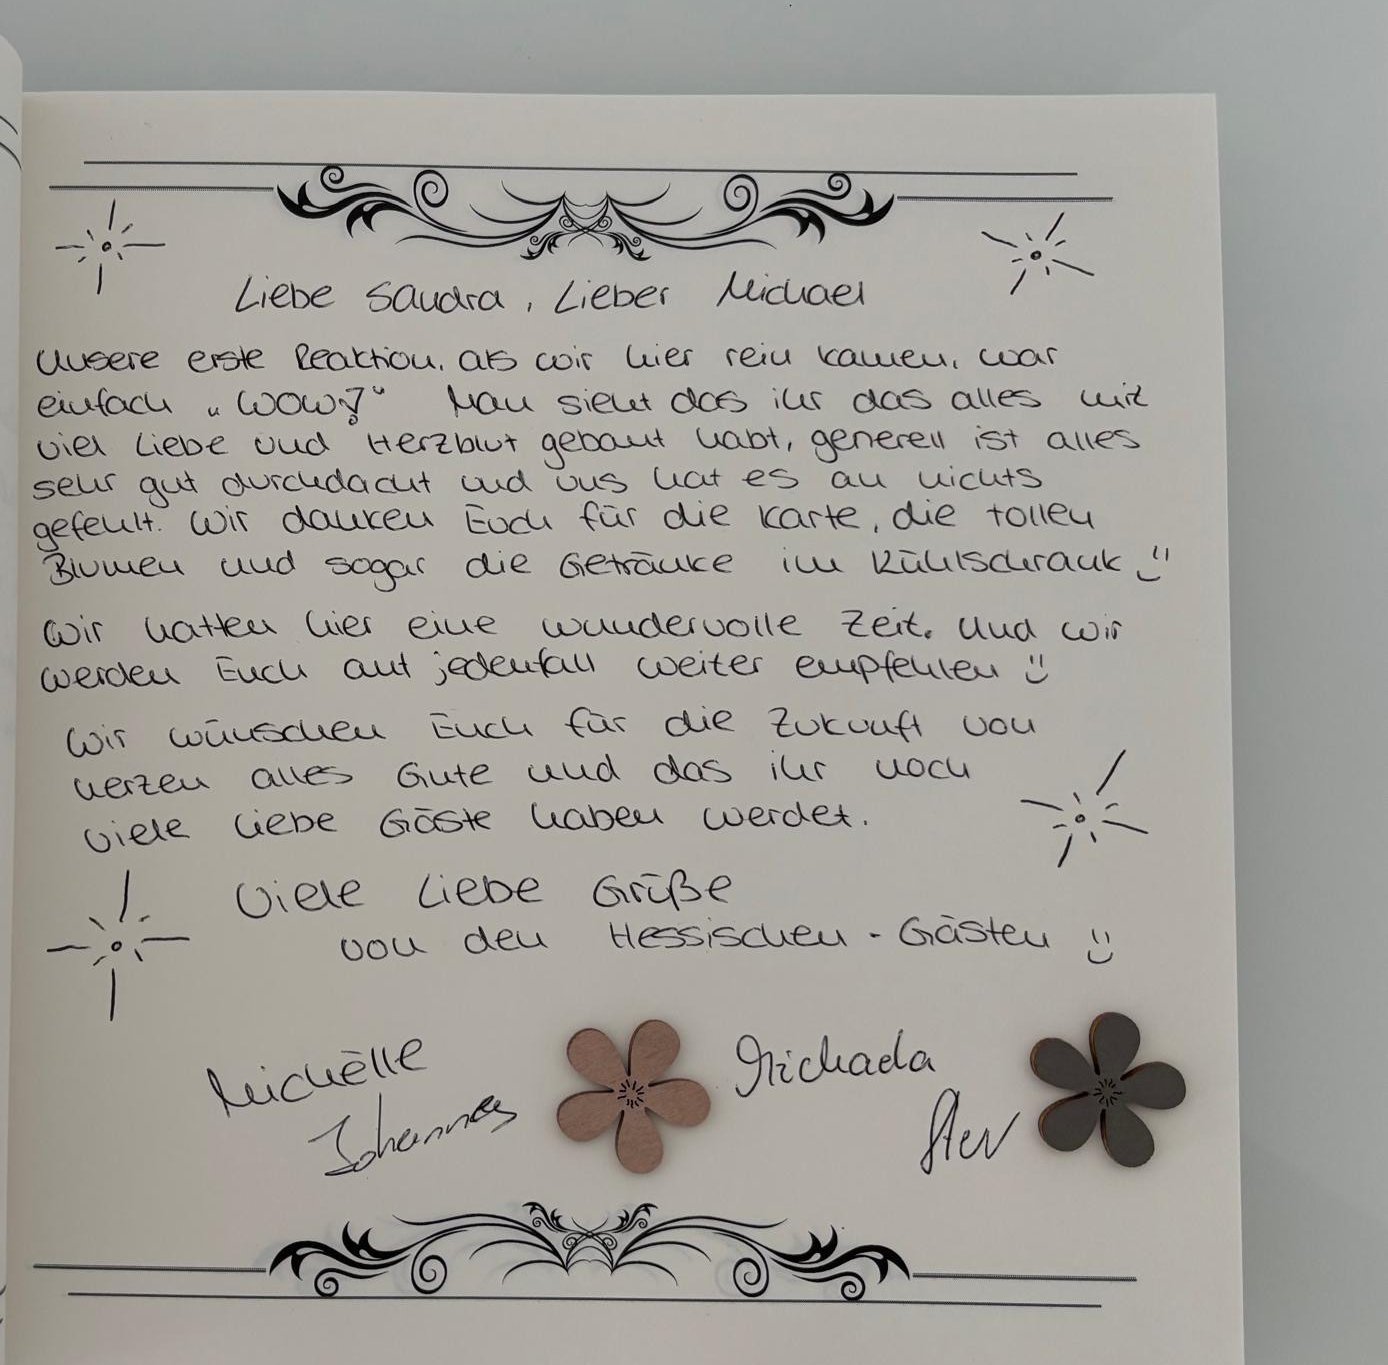 Liebe Sandra, Lieber Michael
Unsere erste Reaktion, als wir hier rein kamen, war
einfach „WOW!“ Man sieht das ihr das alles mit
viel Liebe und Herzblut gebaut habt, generell ist alles
sehr gut durchdacht und uns hat es an nichts
gefehlt. Wir danken Euch für die Karte, die tollen
Blumen und sogar die Getränke im Kühlschrank
Wir hatten hier eine wundervolle Zeit. Und wir
werden Euch auf jedenfall weiter empfehlen
Wir wünschen Euch für die Zukunft von
herzen alles Gute und das ihr noch
viele liebe Gäste haben werdet.
Viele Liebe Grüße
von den Hessischen - Gästen
Michèlle
Johannes